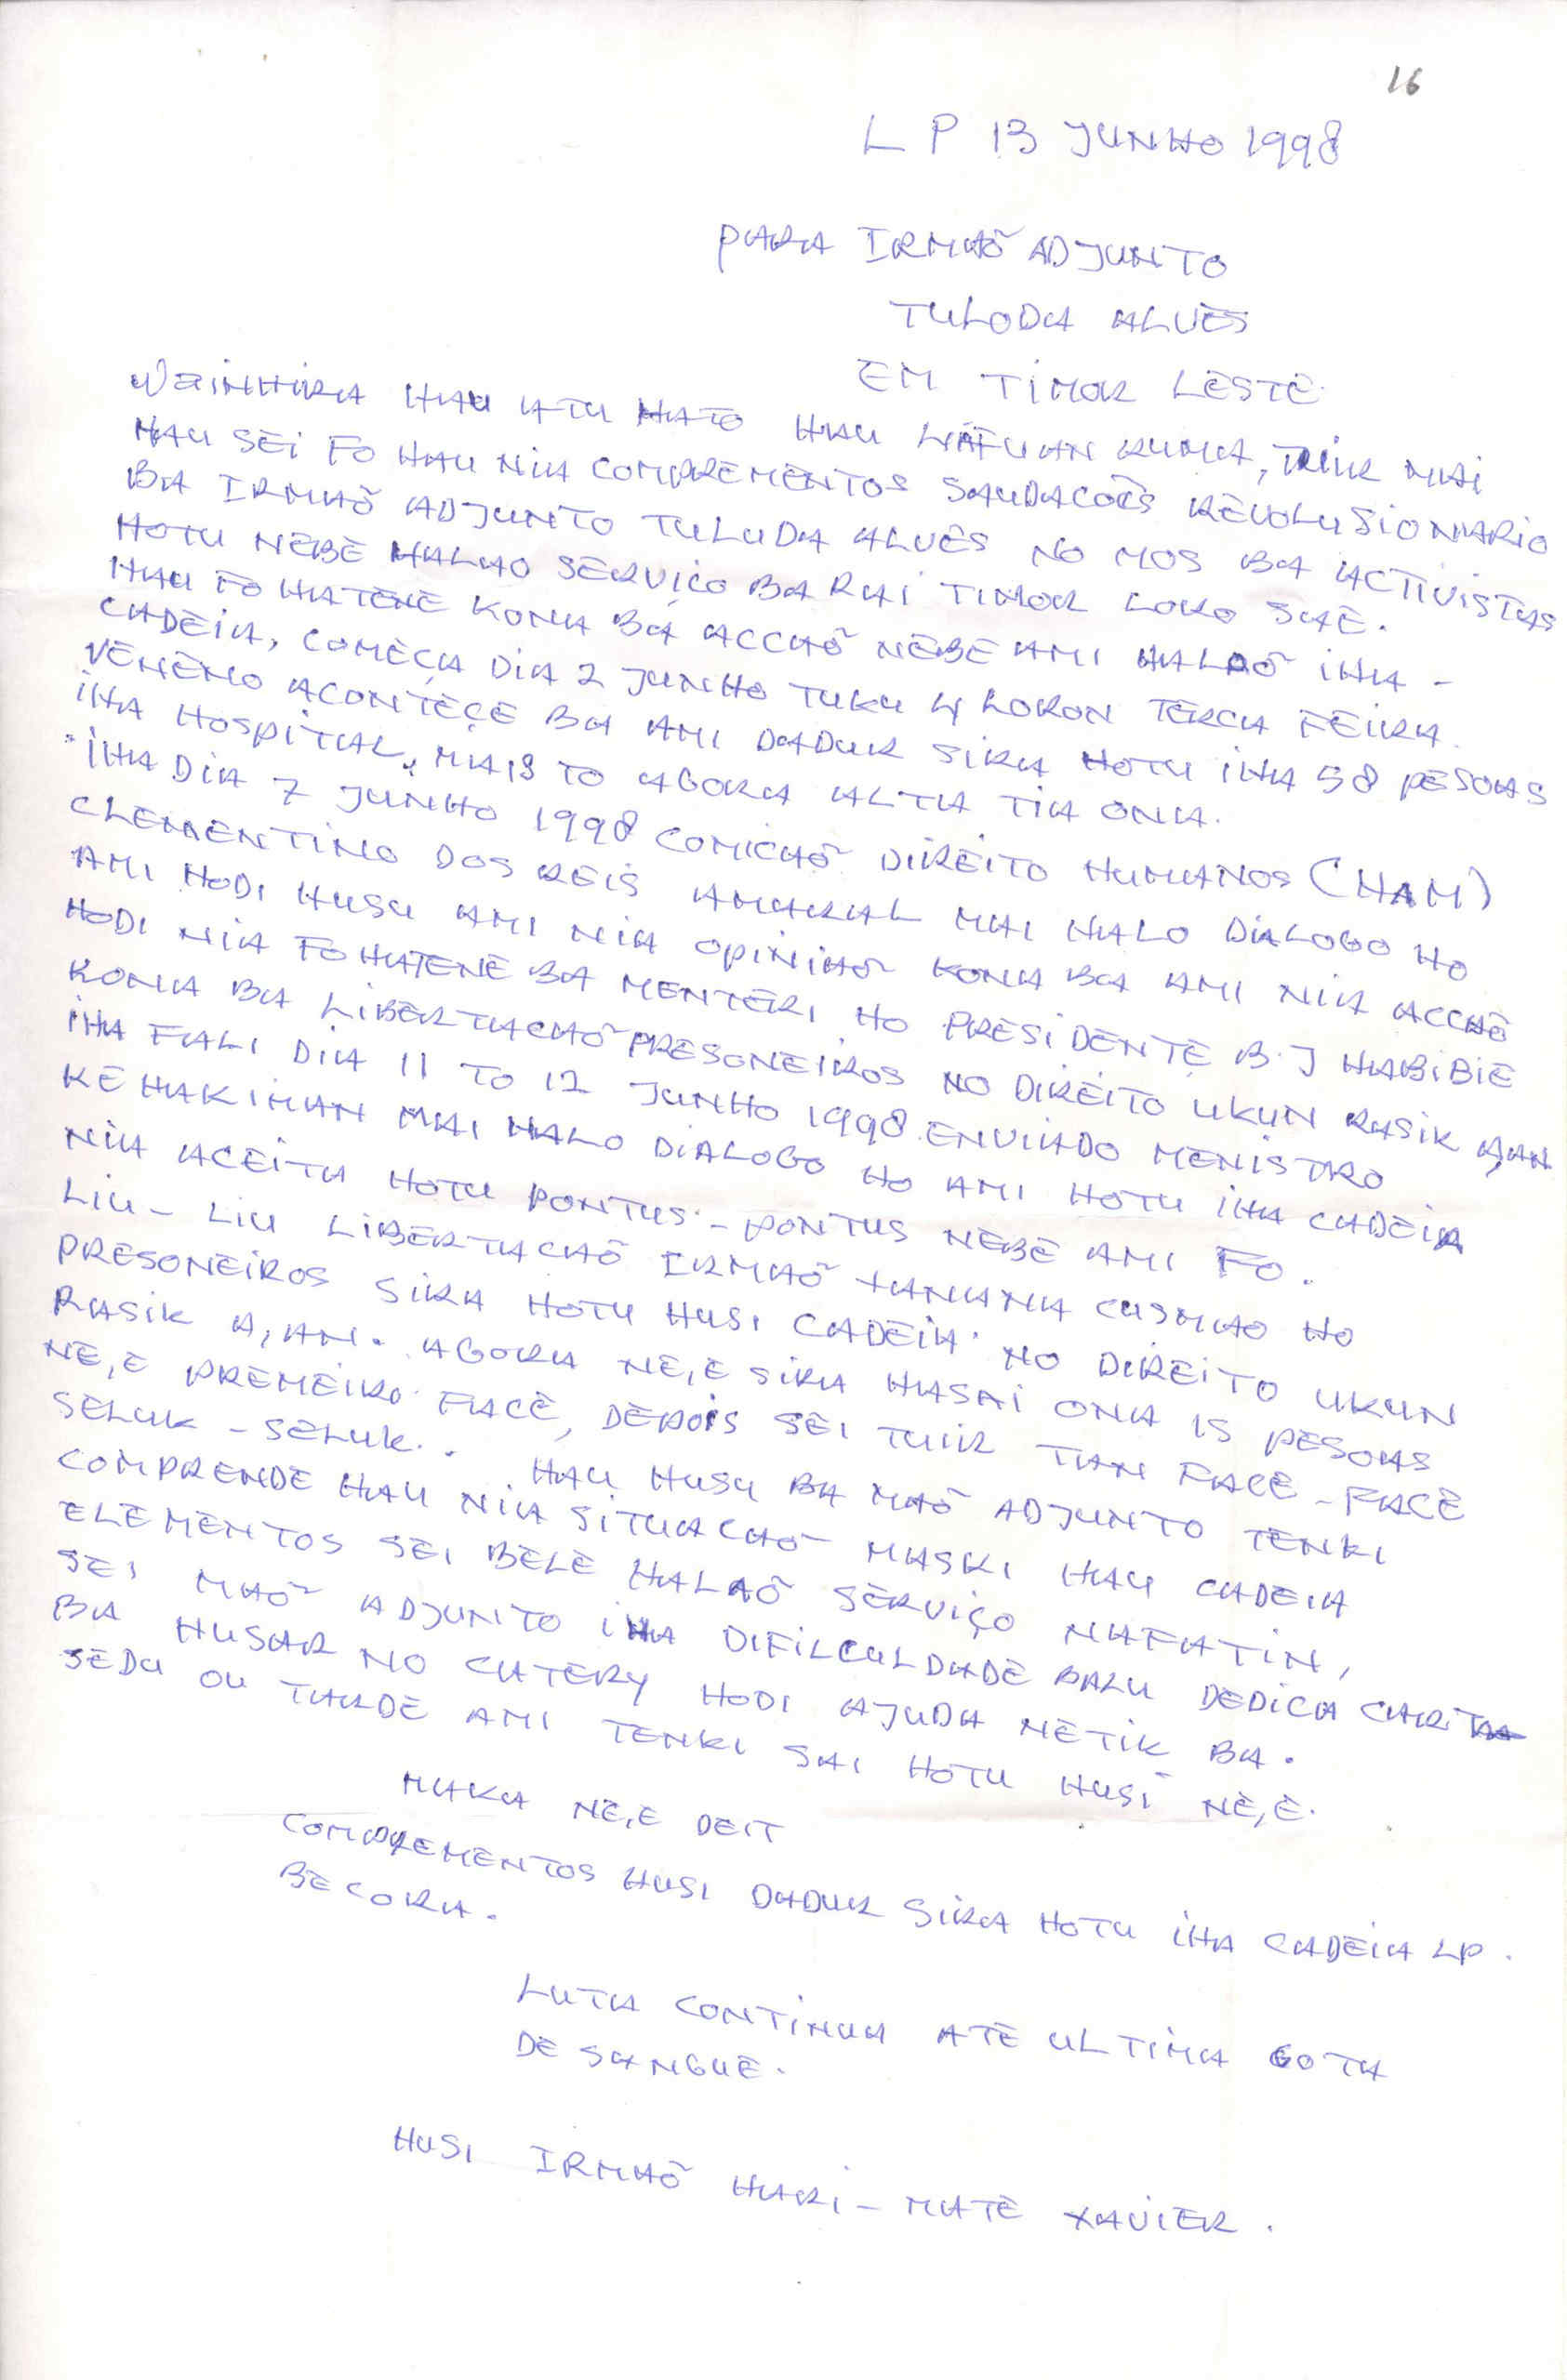 16
L P 13 JUNHO 1998
PARA IRMAÕ ADJUNTO
TULODA ALVES
EM TIMOR LESTE.
WAINHIRA HAU ATU HATO HAU LIAFUAN RUMA, TUIR MAI
HAU SEI FO HAU NIA COMPREMENTOS SAUDACOES REVOLUSIONARIO
BA IRMAÕ ADJUNTO TULUDA ALVES NO MOS BA ACTIVISTAS
HOTU NEBE HALAO SERVIÇO BA RAI TIMOR LORO SAE.
HAU FO HATENE KONA BA ACCAÕ NEBE AMI HALAÕ IHA -
CADEIA, COMEÇA DIA 2 JUNHO TUKU 4 LORON TERCA FEIRA.
VENENO ACONTEÇE BA AMI DADUR SIRA HOTU IHA 58 PESOAS
IHA HOSPITAL, MAIS TO AGORA ALTA TIA ONA.
IHA DIA 7 JUNHO 1998 COMICAÕ DIREITO HUMANOS (HAM)
CLEMENTINO DOS REIS AMARAL MAI HALO DIALOGO HO
AMI HODI HUSU AMI NIA OPINIAÕ KONA BA AMI NIA ACCAÕ
HODI NIA FO HATENE BA MENTERI HO PRESIDENTE B.J HABIBIE
KONA BA LIBERTACAÕ PRESONEIROS NO DIREITO UKUN RASIK A,AN
IHA FALI DIA 11 TO 12 JUNHO 1998 ENVIADO MENISTRO
KEHAKIMAN MAI HALO DIALOGO HO AMI HOTU IHA CADEIA
NIA ACEITA HOTU PONTUS - PONTUS NEBE AMI FO.
LIU - LIU LIBERTACAÕ IRMAÕ XANANA CUSMAO HO
PRESONEIROS SIRA HOTU HUSI CADEIA. NO DIREITO UKUN
RASIK A,AN. AGORA NE,E SIRA HASAI ONA 15 PESOAS
NE,E PREMEIRO FACE, DEPOIS SEI TUIR TAN FACE - FACE
SELUK - SELUK. HAU HUSU BA MAÕ ADJUNTO TENKI
COMPRENDE HAU NIA SITUACAÕ MASKI HAU CADEIA
ELEMENTOS SEI BELE HALAÕ SERVIÇO NAFATIN,
SEI MAÕ ADJUNTO IHA DIFILCULDADE BALU DEDICA CARTA
BA HUSAR NO CATERY HODI AJUDA NETIK BA.
SEDU OU TARDE AMI TENKI SAI HOTU HUSI NE,E.
MAKA NE,E DEIT
COMPREMENTOS HUSI DADUR SIRA HOTU IHA CADEIA LP.
BECORA.
LUTA CONTINUA ATE ULTIMA GOTA
DE SANGUE.
HUSI IRMAÕ HARI - MATE XAVIER.